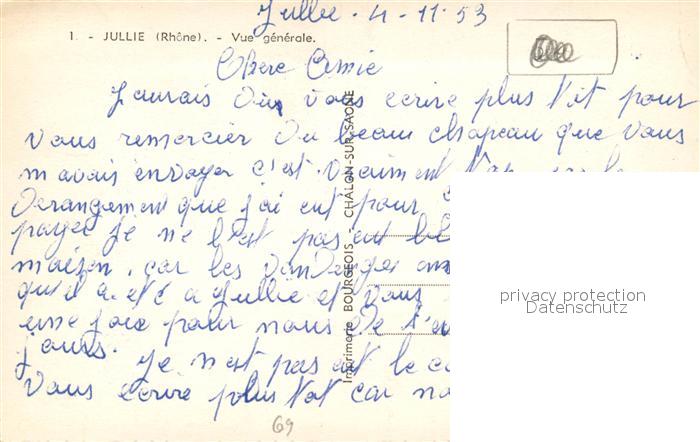 Jullié - 4 - 11 - 53
1. - JULLIE (Rhône). - Vue générale.
Chère Amie
J'aurais du vous ecrire plus tot pour
vous remercier du beau chapeau que vous
m avais envoyer c'est vraiment
Derangement que j'ai eut pour
payer je ne l'est pas eut
maison, car les vendanges
qu'il a été a Jullié et vous
une fois pour nous
jours.
Je n est pas eut le
vous ecrire plus tot car
Imprimerie BOURGEOIS - CHALON-SUR-SAONE
privacy protection
Datenschutz
69